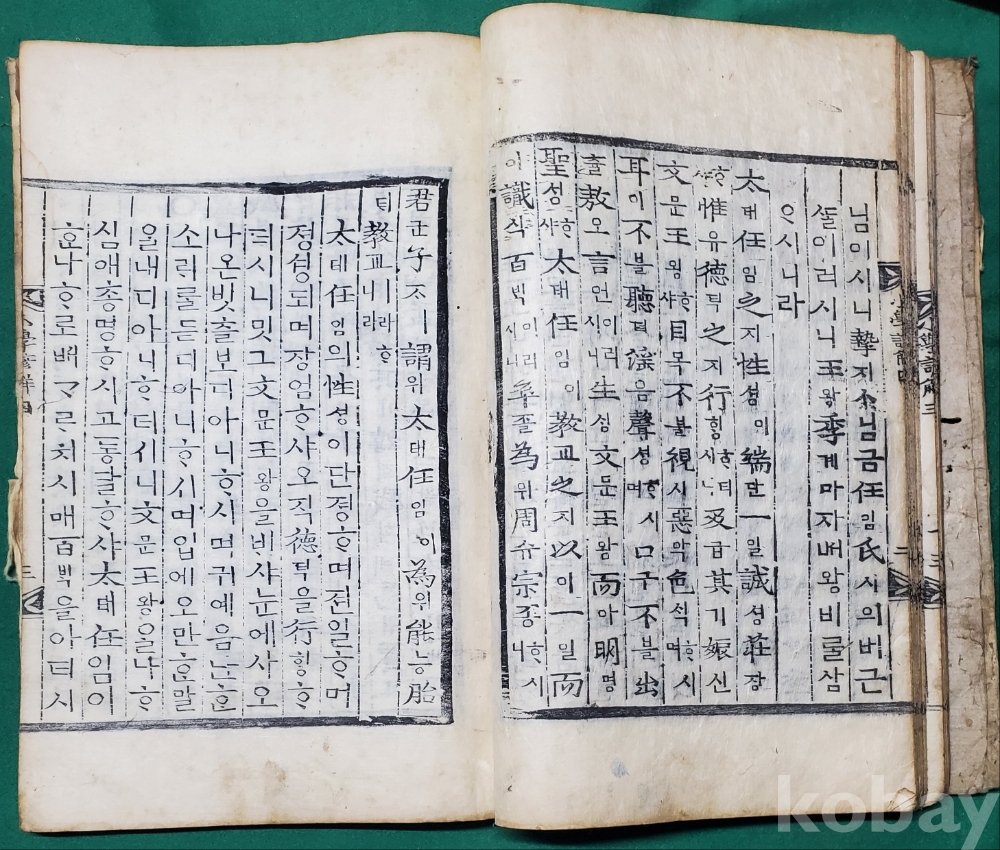 님이시니摯지ㅅ님금任임氏시의버근
ᄯᆞᆯ이러시니王왕季계마자ᄡᅥ왕비ᄅᆞᆯ삼
으시니라
太태任임之지性셩이端단一일誠셩莊장
ᄒᆞ샤惟유德덕之지行ᄒᆡᆼᄒᆞ더시니及급其기娠신
文문王왕ᄒᆞ샤目목不불視시惡악色ᄉᆡᆨᄒᆞ시며
耳이不불聽텽淫음聲셩ᄒᆞ시며口구不불出
츌敖오言언이러시니生ᄉᆡᆼ文문王왕而이明명
聖셩ᄒᆞ샤太태任임이敎교之지以이一일而
이識식百ᄇᆡᆨ이러시니卒졸為위周쥬宗종ᄒᆞ시니
君군子ᄌᆞㅣ謂위太태任임이為위能능胎
ᄐᆡ敎교ㅣ라ᄒᆞ니라
太태任임의性셩이단졍ᄒᆞ며젼일ᄒᆞ며
졍셩되며쟝엄ᄒᆞ샤오직德덕을行ᄒᆡᆼᄒᆞ
더시니밋그文문王왕을ᄇᆡ샤눈에사오
나온빗츨보디아니ᄒᆞ시며귀예음난ᄒᆞᆫ
소ᄅᆡᄅᆞᆯ듣디아니ᄒᆞ시며입에오만ᄒᆞᆫ말
을내디아니ᄒᆞ더시니文문王왕을나ᄒᆞ
심애춍명ᄒᆞ시고통달ᄒᆞ샤太태任임이
ᄒᆞ나ᄒᆞ로ᄡᅥᄀᆞᄅᆞ치시매百ᄇᆡᆨ을아더시
小學諺解四
三
kobay